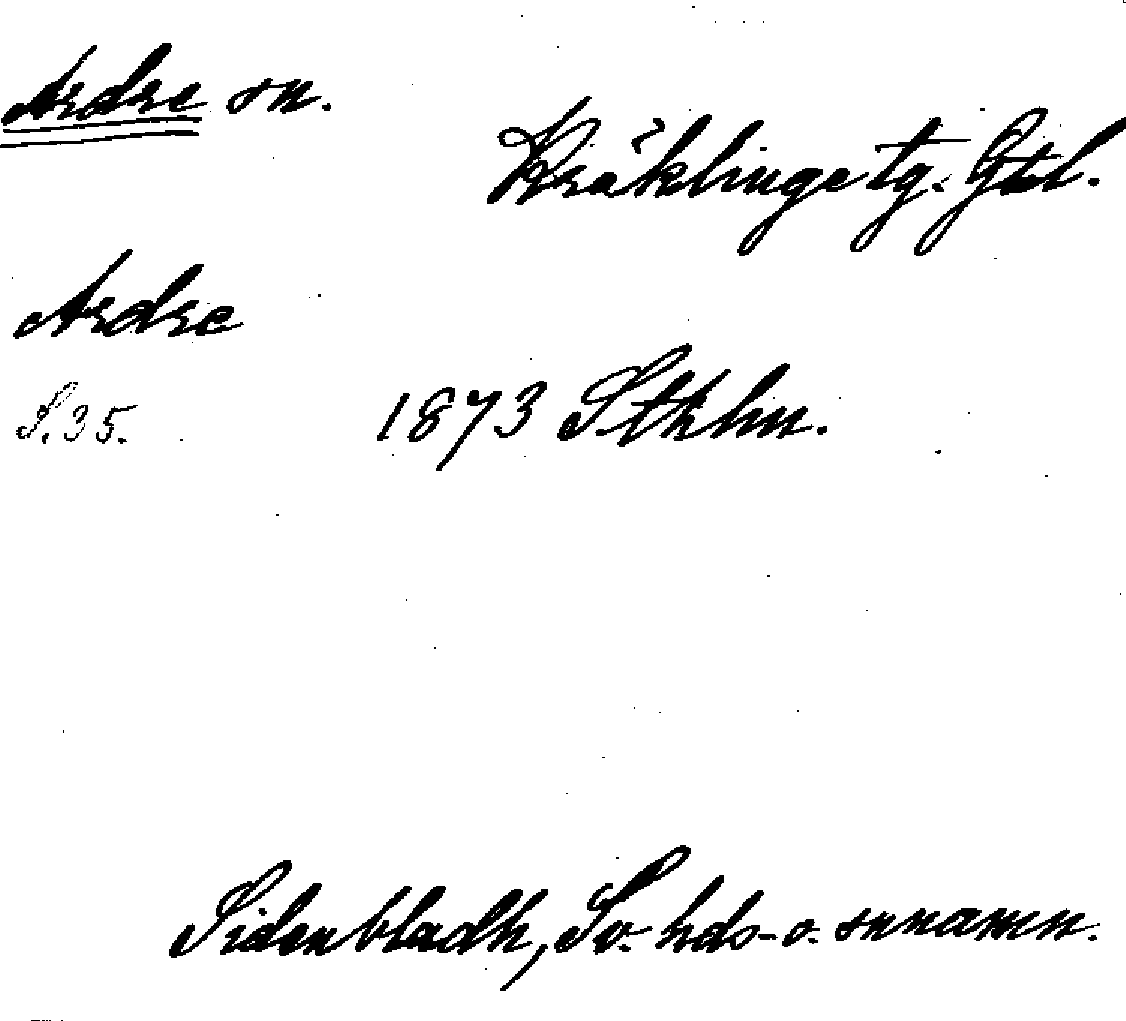 Ardre sn.
Kräklinge tg. Gtl.
Ardre
S. 35. 1873 Sthlm.
Sidenbladh, Sv. hds- o. snnamn.